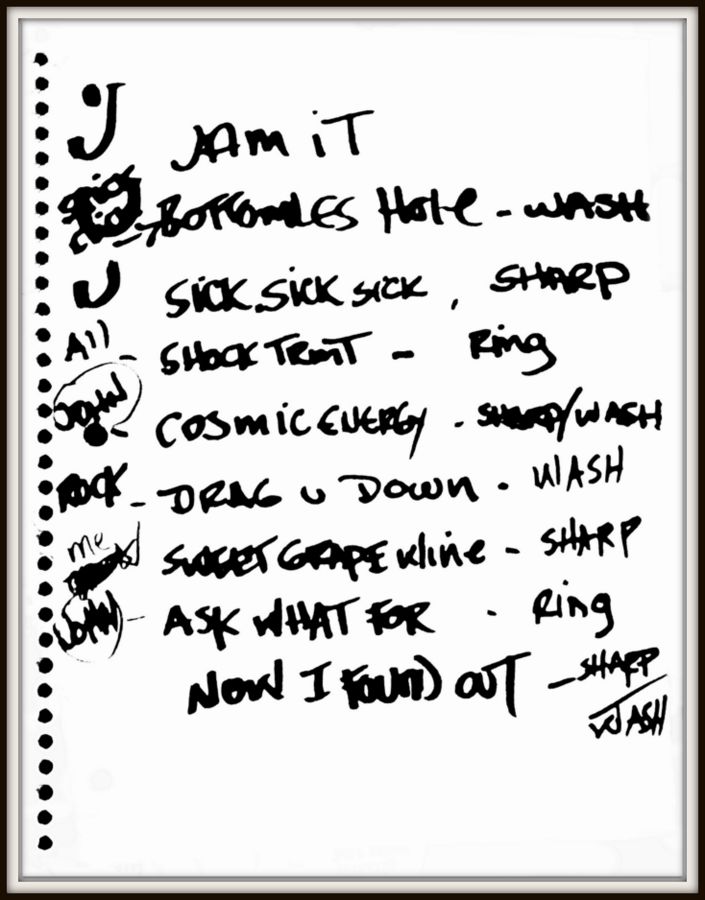 J JAM iT
BOTTOMLES HOLE - WASH
J SiCK SiCK SiCK, SHARP
All - SHOCK TREMT - Ring
JOHN - COSMIC ENERGY - SHARP/WASH
ROCK - DRAG U DOWN - WASH
me SWEET GRAPE Kline - SHARP
JOHN - ASK WHAT FOR - Ring
NOW I FOUND OUT - SHARP
WASH